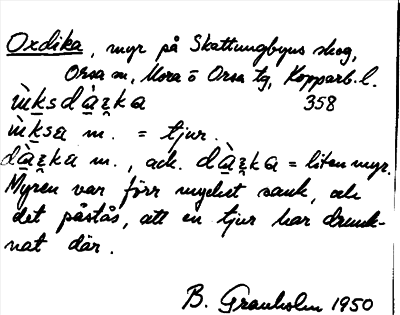 Oxdika, myr på Skattungbyns skog,
Orsa sn, Mora o Orsa tg, Kopparb. l.
ùksdàʒ̥ka 358
ùksa m. = tjur.
dàʒ̥ka m., ack. dàʒ̥ka = liten myr.
Myren var förr mycket sank, och
det påstås, att en tjur har drunk-
nat där.
B. Granholm 1950